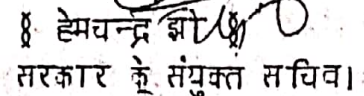 § हेमचन्द्र झा §
सरकार के संयुक्त सचिव।